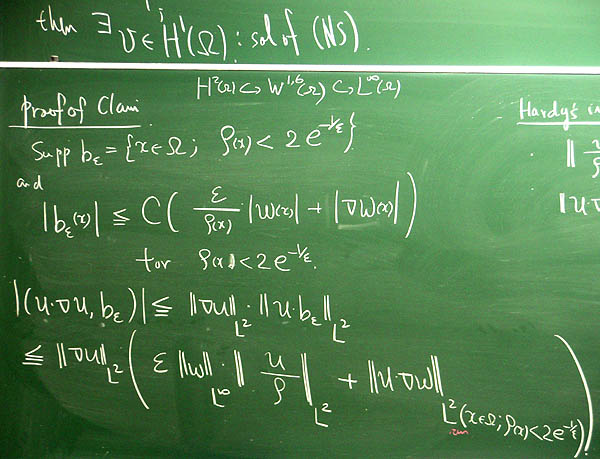 then ∃ v ∈ H¹(Ω) : sol of (NS).
H²(Ω) ↪ W^{1,6}(Ω) ↪ L^∞(Ω)
proof of Claim
Supp b_ε = {x ∈ Ω ; ρ(x) < 2e^{-1/ε}}
and
|b_ε(x)| ≦ C( ε/ρ(x) · |w(x)| + |∇w(x)| )
for ρ(x) < 2e^{-1/ε}.
|(u·∇u, b_ε)| ≦ ‖∇u‖_{L²} · ‖u·b_ε‖_{L²}
≦ ‖∇u‖_{L²} ( ε ‖w‖_{L^∞} · ‖u/ρ‖_{L²} + ‖u·∇w‖_{L²(x∈Ω; ρ(x)<2e^{-1/ε})} )
Hardy's